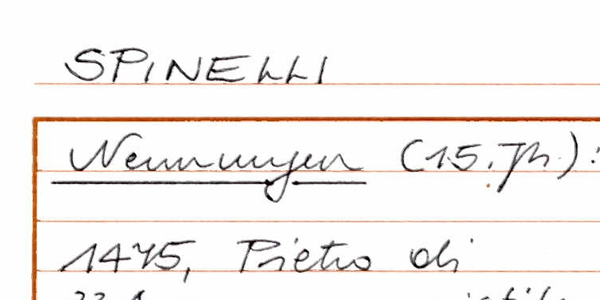 SPINELLI
Nennungen (15. Jh.):
1475, Pietro di